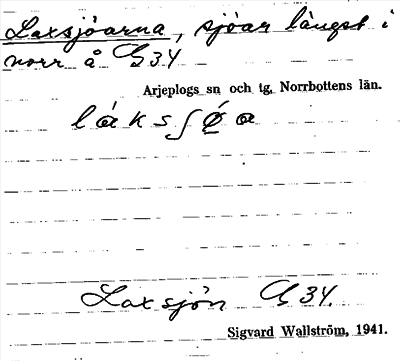 Laxsjöarna, sjöar längst i
norr å G34
Arjeplogs sn och tg. Norrbottens län.
Laxsjön G34.
Sigvard Wallström, 1941.